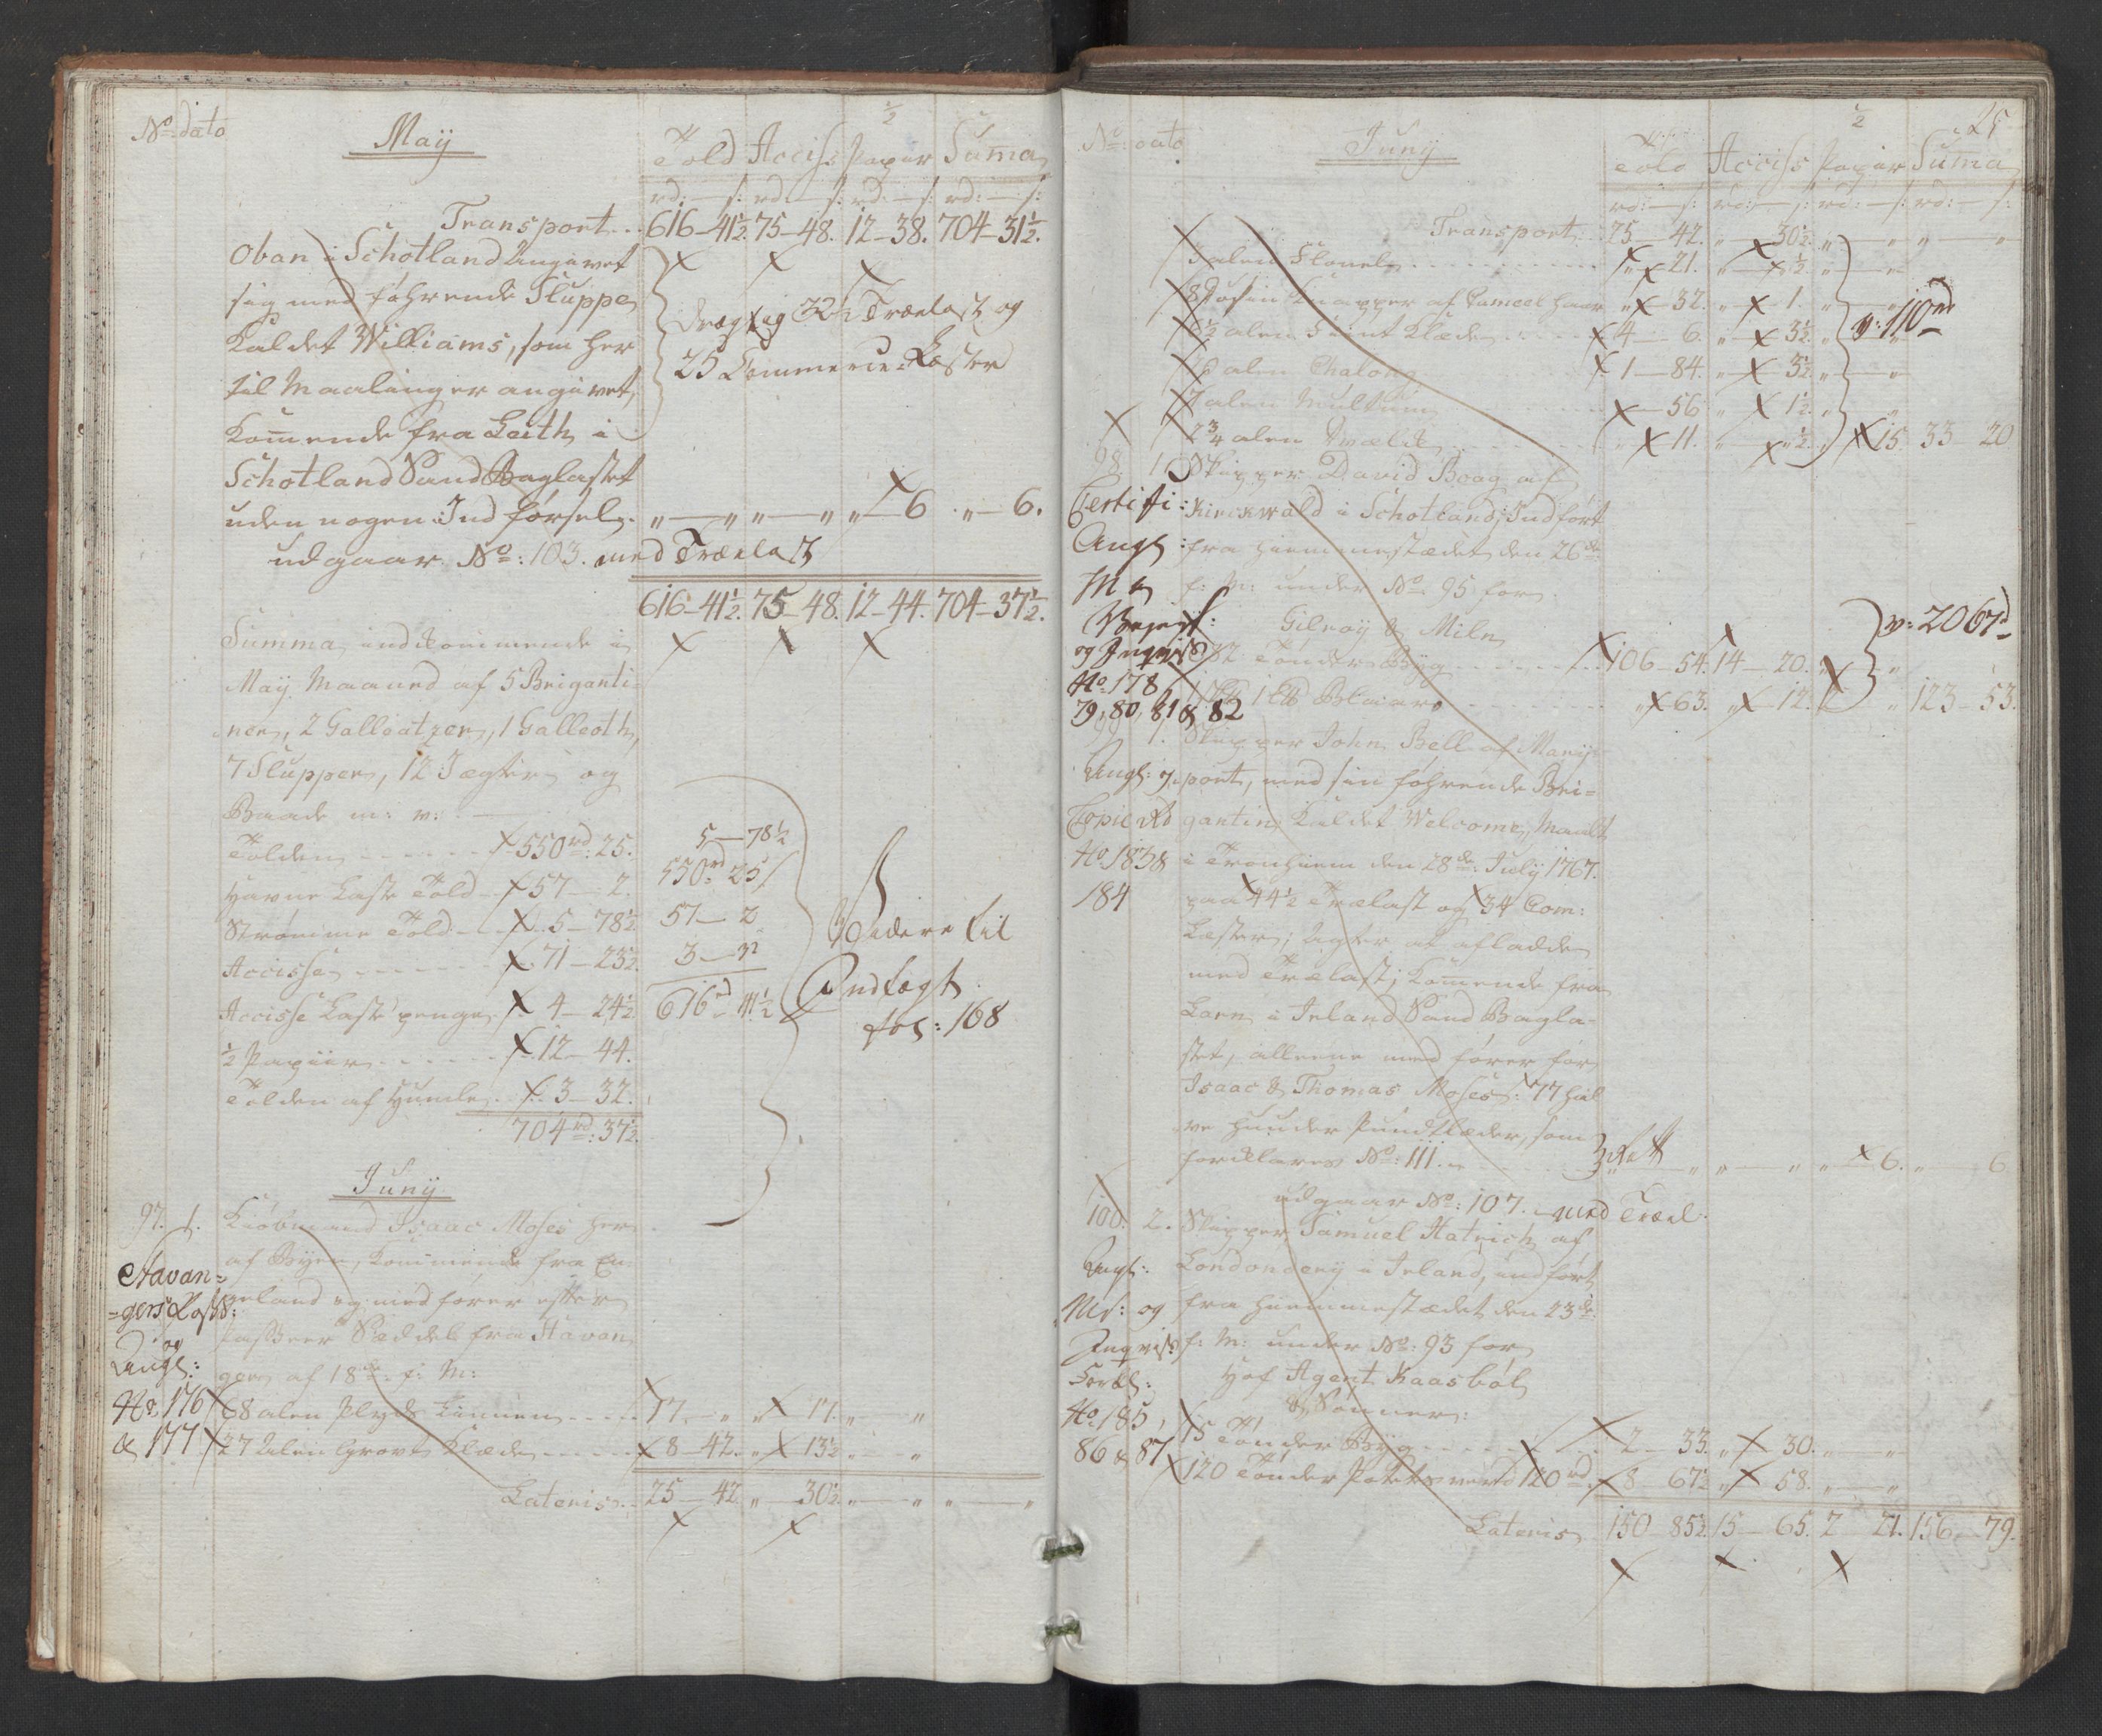 No dato
May
Told Accise Papiir Suma
½
rd: s: rd: s: rd: s: rd: s:
Transport 616-41½. 75-48. 12-38. 704-31½.
Oban i Schotland Angivet
sig med føhrende Sluppe
Kaldet Williams, som her
til Maalinger angivet,
Komende fra Leith i
Schotland Sand Baglastet
uden nogen Indførsel. „ „ „ „ „ 6. „ 6.
drægtig 32½ Trælast og
25 Commerce Læster
udgaar No: 103. med Trælast
616-41½. 75-48. 12-44. 704-37½.
Summa indkommende i
May Maaned af 5 Briganti-
ner, 2 Galleatzer, 1 Galleoth,
7 Slupper, 12 Jægter og
Baade m: v:
Tolden 550rd: 25.
Havne Laste Told 57 2.
Strømme Told 5-78½
Accisse 71-23½
Accisse Laste penge 4-24½
½ Papiir 12-44.
Tolden af Humle 3-32.
704rd: 37½.
5-78½
550rd 25
57-2
3-32
616rd 41½
Videre til
Indtægt
fol: 168
Juny
97. 1. Kiøbmand Isaac Moses her
af Byen, kommende fra En-
geland og med fører efter
Passeer Seddel fra Stavan
ger af 18de f: M:
Stavan=
=gers Pass:
og
Angl:
No 176
& 177
68 alen Plyds Linnen 17. „ „ 17. „ „
27 Alen Grovt Klæde 8-42. „ 13½ „ „
Lateris 25-42. „ 30½. „ „ „ „
25
No: dato
Juny
Told Accise Papiir Suma
½
rd: s: rd: s: rd: s: rd: s:
Transport 25-42. „ 30½. „ „ „ „
3 alen Flonel „ 21. „ ½. „ „
8 Dosin Knapper af Cameelhaar „ 32. „ 1. „ „
½ alen Fiint Klæde 4-6. „ 3½. „ „
alen Chalong 1-84. „ 3½. „ „
7 alen Multum „ 56 „ 1½. „ „
2¾ alen „ 11. „ ½. 15 33-20
v: 110rd
98. 1. Skipper David Boag af
Kirckwald i Schotland, Indført
fra hiemmestædet den 26de
f: M: under No 95 for
Gilroy & Miln
Certifi:
Angl:
og Inqvis
No. 178
79, 80, 81 & 82
182 Tønder Byg 106-54. 14-20. „
v: 206rd
Blaar „ 63. „ 12. „ 123-53.
99 1. Skipper John Bell af Mary-
port, med sin føhrende Bri=
gantin, Kaldet Welcome, Maalt
i Tronhiem den 28de July 1767.
paa 44½ Trælast og 34 Com:
Læster; Agter at afladde
med Trælast; Komende fra
Larn i Irland Sand Bagla-
stet, alleene med fører for
Isaac & Thomas Moses: 77 hal
ve hunder Pund Læder, som
forklares No: 111. „ „ „ „ „ 6. „ 6
Angl: og
Copie
No: 183 &
184
udgaar No: 107. med Træl.
100. 2. Skipper Samuel Hatrich af
Londondery i Irland, indført
fra hiemmestædet den 23de
f: M: under No: 93 for
Hof Agent Kaasbøl
& Sønner:
Angl:
og
Inqvis:
No 185,
86 & 87
15 Tønder Byg 2-33. „ 30. „ „
120 Tønder Potetes værd 120rd 8-67½ „ 58. „ „
Lateris 150-85½ 15-65. 2-21. 156-79.